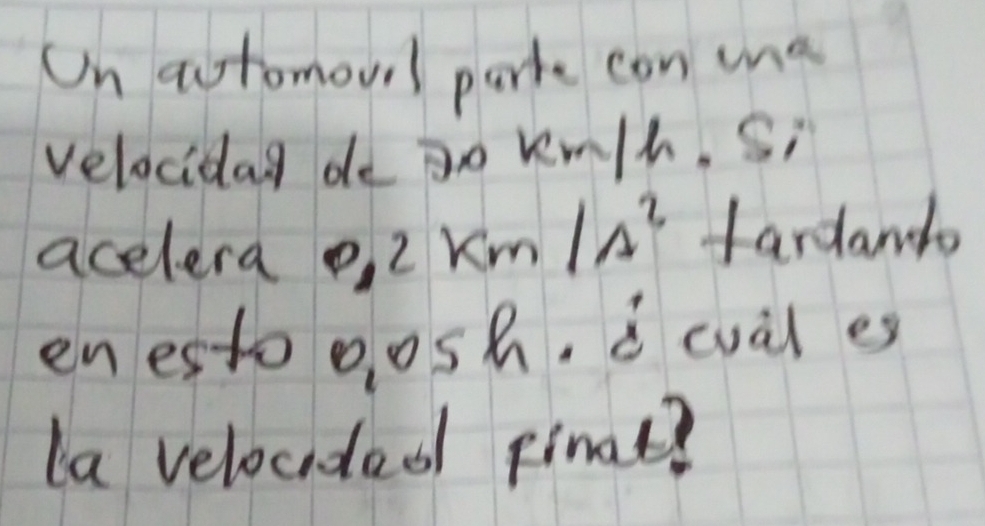 Un automovil parte con una
velocidad de 30 km/h. Si
acelera 0,2 Km/s² tardando
en esto 0,05h. ¿ cuál es
la velocidad final?